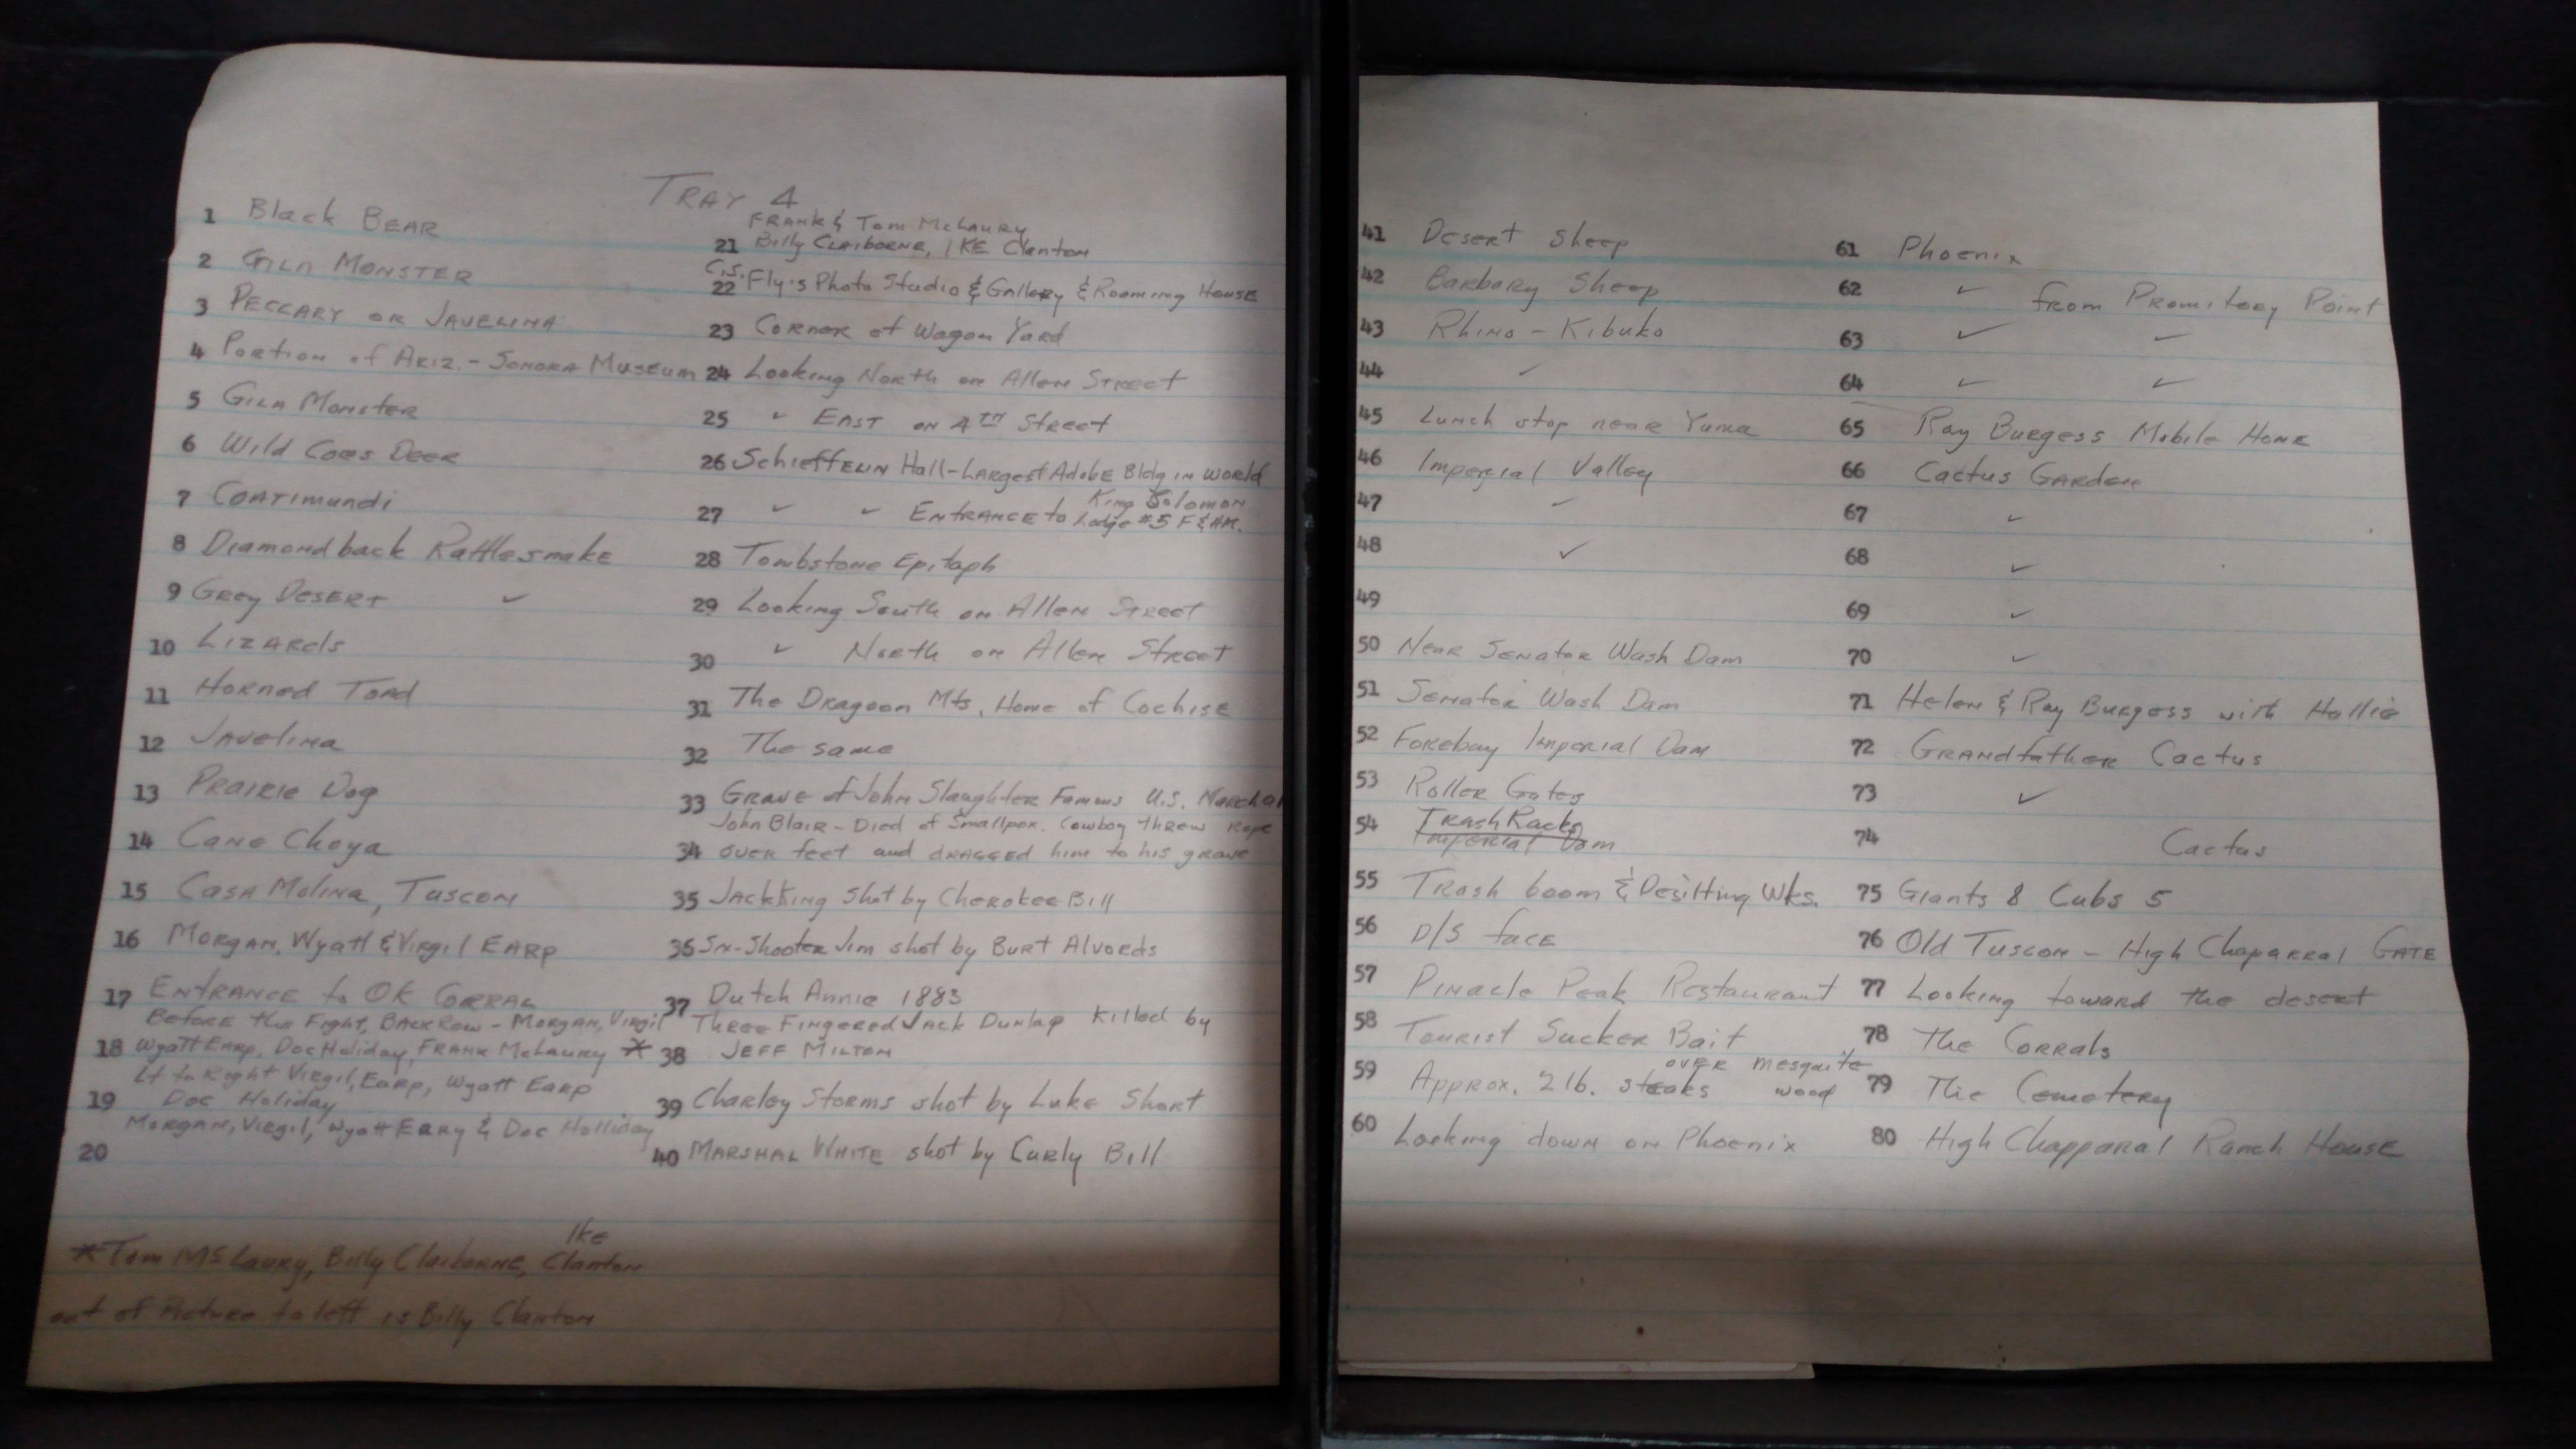 TRAY 4
1 Black BEAR
2 GILA MONSTER
3 PECCARY OR JAVELINA
4 Portion of ARIZ. - SONORA Museum
5 GILA MONSTER
6 Wild Coes Deer
7 COATIMUNDI
8 Diamondback Rattlesnake
9 Grey DESERT ✓
10 LIZARDS
11 HORNED TOAD
12 JAVELINA
13 PRAIRIE Dog
14 CANE Choya
15 CASA MOLINA, TUSCON
16 MORGAN, Wyatt & Virgil EARP
17 ENTRANCE to OK CORRAL
Before the Fight, BACK Row - MORGAN, Virgil
18 Wyatt EARP, Doc Holiday, FRANK McLaury *
Lt to Right Virgil, Earp, Wyatt EARP
19 Doc Holiday
MORGAN, Virgil, Wyatt EARY & Doc Holliday
20
* Tom McLaury, Billy Claiborne, Ike Clanton
out of Picture to left is Billy Clanton
FRANK & Tom McLaury
21 Billy CLAIBORNE, IKE Clanton
C.S.
22 Fly's Photo Studio & Gallery & Rooming HOUSE
23 CORNER of Wagon Yard
24 Looking North on Allen STREET
25 ✓ EAST ON 4TH Street
26 SchieffELIN Hall - LARGEST Adobe Bldg IN WORLD
27 ✓ ✓ ENTRANCE to King Solomon Lodge #5 F & AM.
28 Tombstone Epitaph
29 Looking South on Allen STREET
30 ✓ North on Allen STREET
31 The Dragoon Mts. Home of Cochise
32 The same
33 Grave of John Slaughter Famous U.S. Marchal
John BLAIR - Died of Smallpox. Cowboy threw Rope
34 OVER feet and DRAGGED him to his grave
35 Jack King shot by Cherokee Bill
36 Six-Shooter Jim shot by BURT Alvords
37 Dutch Annie 1883
Three Fingered Jack Dunlap Killed by
38 JEFF MILTON
39 Charley Storms shot by Luke Short
40 MARSHAL WHITE shot by Curly Bill
41 Desert Sheep
42 Barbary Sheep
43 Rhino - Kibuko
44 ✓
45 Lunch stop near Yuma
46 Imperial Valley
47 ✓
48 ✓
49
50 Near Senator Wash Dam
51 Senator Wash Dam
52 Forebay Imperial Dam
53 Roller Gates
54 Trash Racks
Imperial Dam
55 Trash boom & Desilting Wks.
56 D/S face
57 Pinacle Peak Restaurant
58 Tourist Sucker Bait
59 Approx. 2 lb. steaks over mesquite wood
60 Looking down on Phoenix
61 Phoenix
62 ✓ from Promitory Point
63 ✓ ✓
64 ✓ ✓
65 Ray Burgess Mobile Home
66 Cactus Garden
67 ✓
68 ✓
69 ✓
70 ✓
71 Helen & Ray Burgess with Hallie
72 GRANDfather Cactus
73 ✓
74 Cactus
75 Giants 8 Cubs 5
76 Old Tuscon - High Chaparral GATE
77 Looking toward the desert
78 The Corrals
79 The Cemetery
80 High Chapparal Ranch House